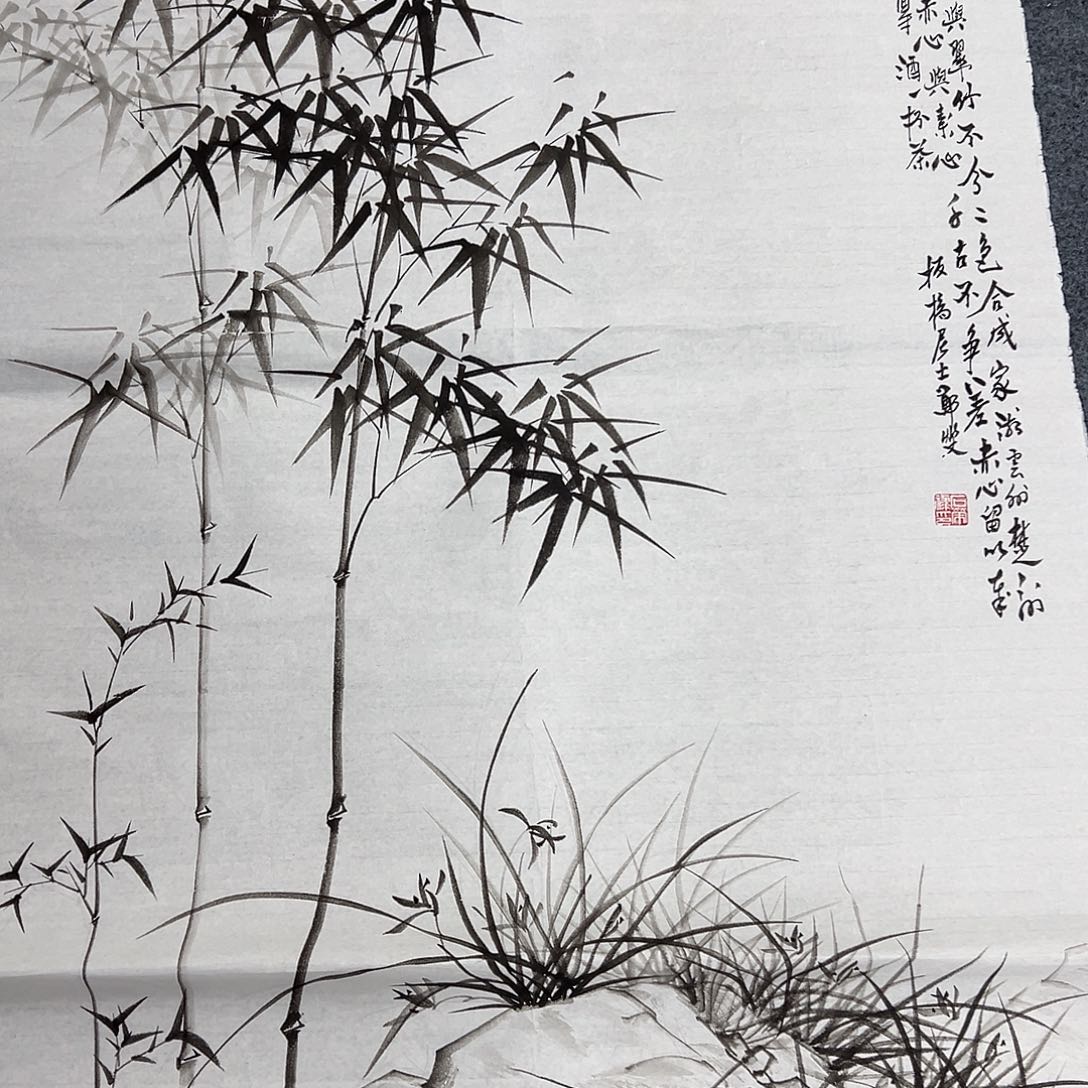 與翠竹不分二色合成家瀟雲外楚
赤心與素心千古不爭差赤心留以奉
酒一杯茶
板橋居士鄭燮